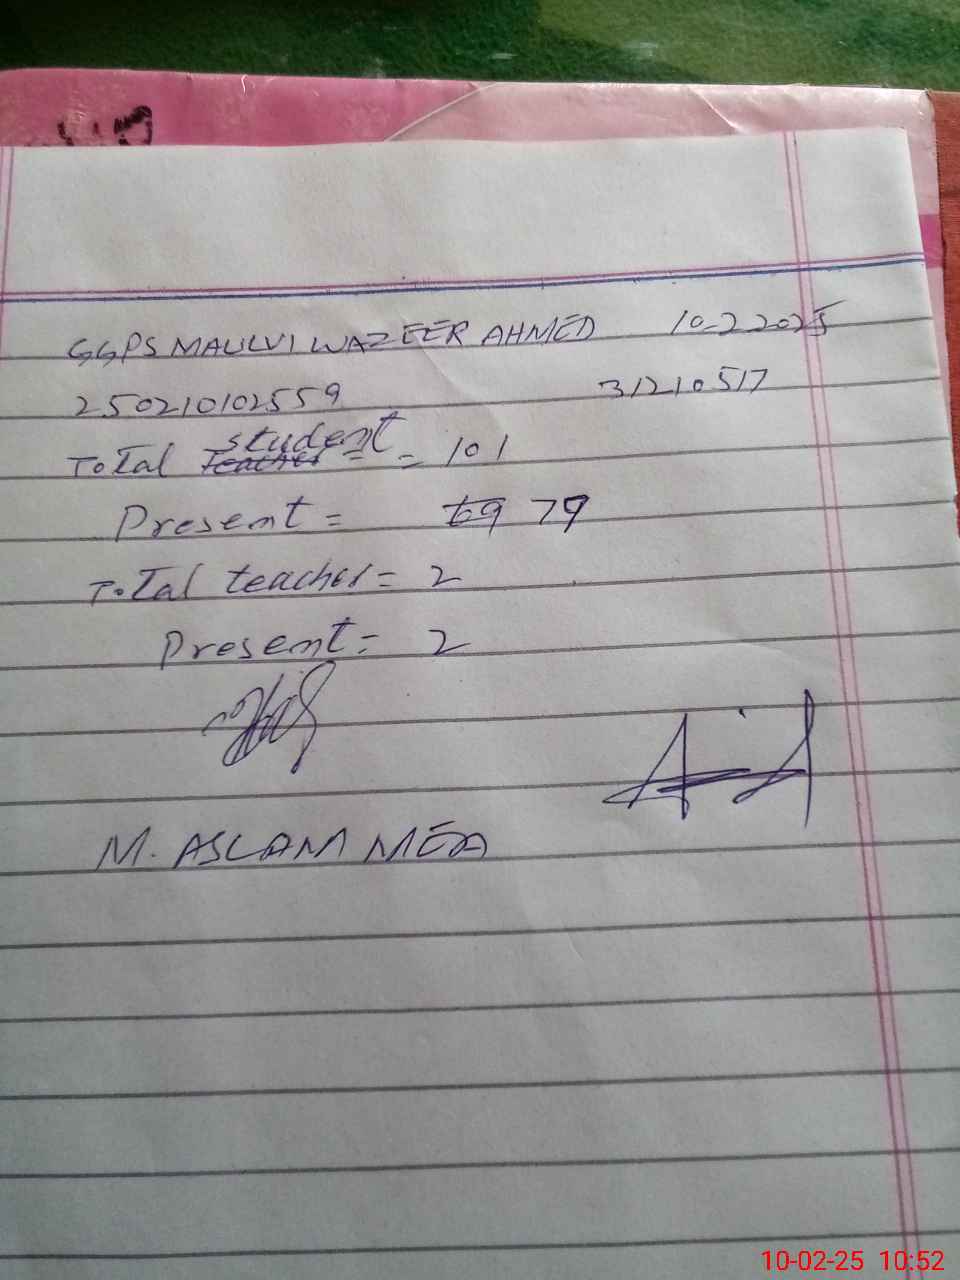 GGPS MAULVI WAZEER AHMED 10-2 2025
250210102559 31210517
Total student = 101
Present = 79
Total teacher = 2
Present = 2
M. ASLAM MEA
10-02-25 10:52